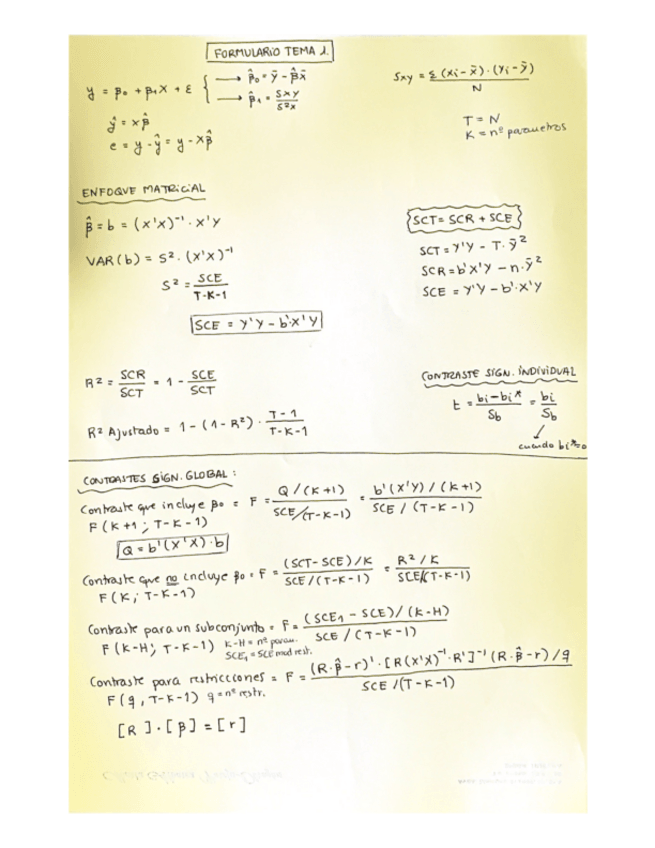 FORMULARIO TEMA 1.
y = β₀ + β₁X + ε { → β̂₀ = ȳ - β̂x̄
→ β̂₁ = Sxy / S²x
Sxy = Σ(xi - x̄)·(yi - ȳ) / N
ŷ = xβ̂
e = y - ŷ = y - xβ̂
T = N
K = nº parametros
ENFOQUE MATRICIAL
β̂ = b = (x'x)⁻¹ · x'y
VAR(b) = S² · (x'x)⁻¹
S² = SCE / T-K-1
SCE = Y'Y - b'·X'Y
SCT = SCR + SCE
SCT = Y'Y - T·ȳ²
SCR = b'X'Y - n·ȳ²
SCE = Y'Y - b'·X'Y
R² = SCR / SCT = 1 - SCE / SCT
R² Ajustado = 1 - (1 - R²) · T-1 / T-K-1
CONTRASTE SIGN. INDIVIDUAL
t = bi - bi* / Sb = bi / Sb
cuando bi*=0
CONTRASTES SIGN. GLOBAL:
Contraste que incluye β₀ = F = Q/(K+1) / SCE/(T-K-1) = b'(X'Y)/(K+1) / SCE/(T-K-1)
F(K+1; T-K-1)
Q = b'(X'X)·b
Contraste que no incluye β₀ = F = (SCT-SCE)/K / SCE/(T-K-1) = R²/K / SCE/(T-K-1)
F(K; T-K-1)
Contraste para un subconjunto = F = (SCE₁ - SCE)/(K-H) / SCE/(T-K-1)
F(K-H; T-K-1) K-H = nº param.
SCE₁ = SCE mod restr.
Contraste para restricciones = F = (R·β̂-r)'·[R(X'X)⁻¹·R']⁻¹(R·β̂-r)/q / SCE/(T-K-1)
F(q, T-K-1) q = nº restr.
[R]·[β] = [r]